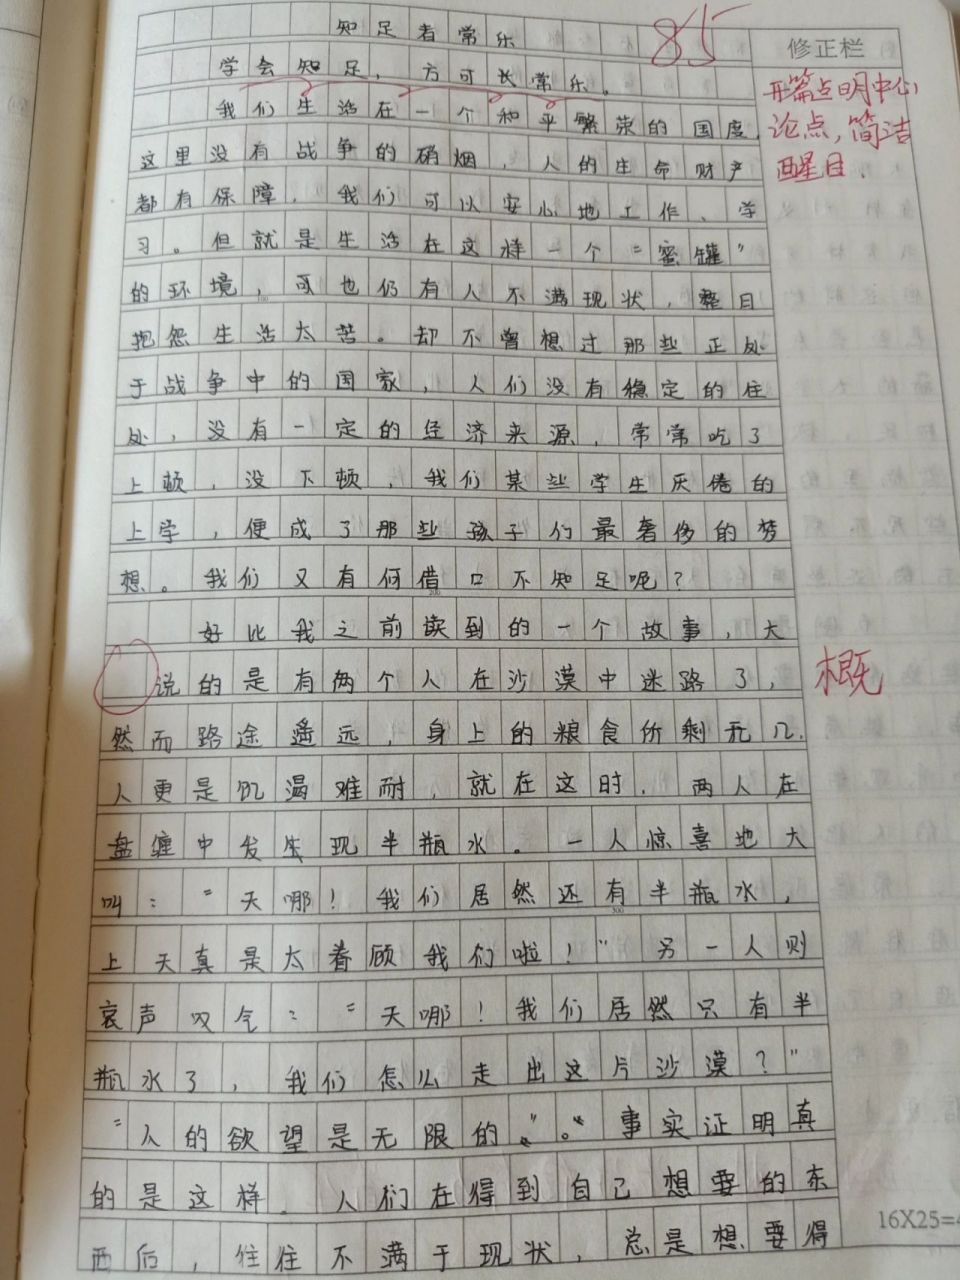 知足者常乐
85
修正栏
学会知足，方可长常乐。
开篇点明中心
论点，简洁
醒目.
我们生活在一个和平繁荣的国度，
这里没有战争的硝烟，人的生命财产
都有保障，我们可以安心地工作、学
习。但就是生活在这样一个“蜜罐”
的环境，可也仍有人不满现状，整日
抱怨生活太苦。却不曾想过那些正处
于战争中的国家，人们没有稳定的住
处，没有一定的经济来源，常常吃了
上顿，没下顿，我们某些学生厌倦的
上学，便成了那些孩子们最奢侈的梦
想。我们又有何借口不知足呢？
200
好比我之前读到的一个故事，大
说的是有两个人在沙漠中迷路了，
概
然而路途遥远，身上的粮食价剩无几.
人更是饥渴难耐，就在这时.两人在
盘缠中发生现半瓶水。一人惊喜地大
叫：“天哪！我们居然还有半瓶水，
300
上天真是太眷顾我们啦！”另一人则
哀声叹气：“天哪！我们居然只有半
瓶水了，我们怎么走出这片沙漠？”
“人的欲望是无限的”。事实证明真
的是这样.人们在得到自己想要的东
西后，往往不满于现状，总是想要得
16X25=4